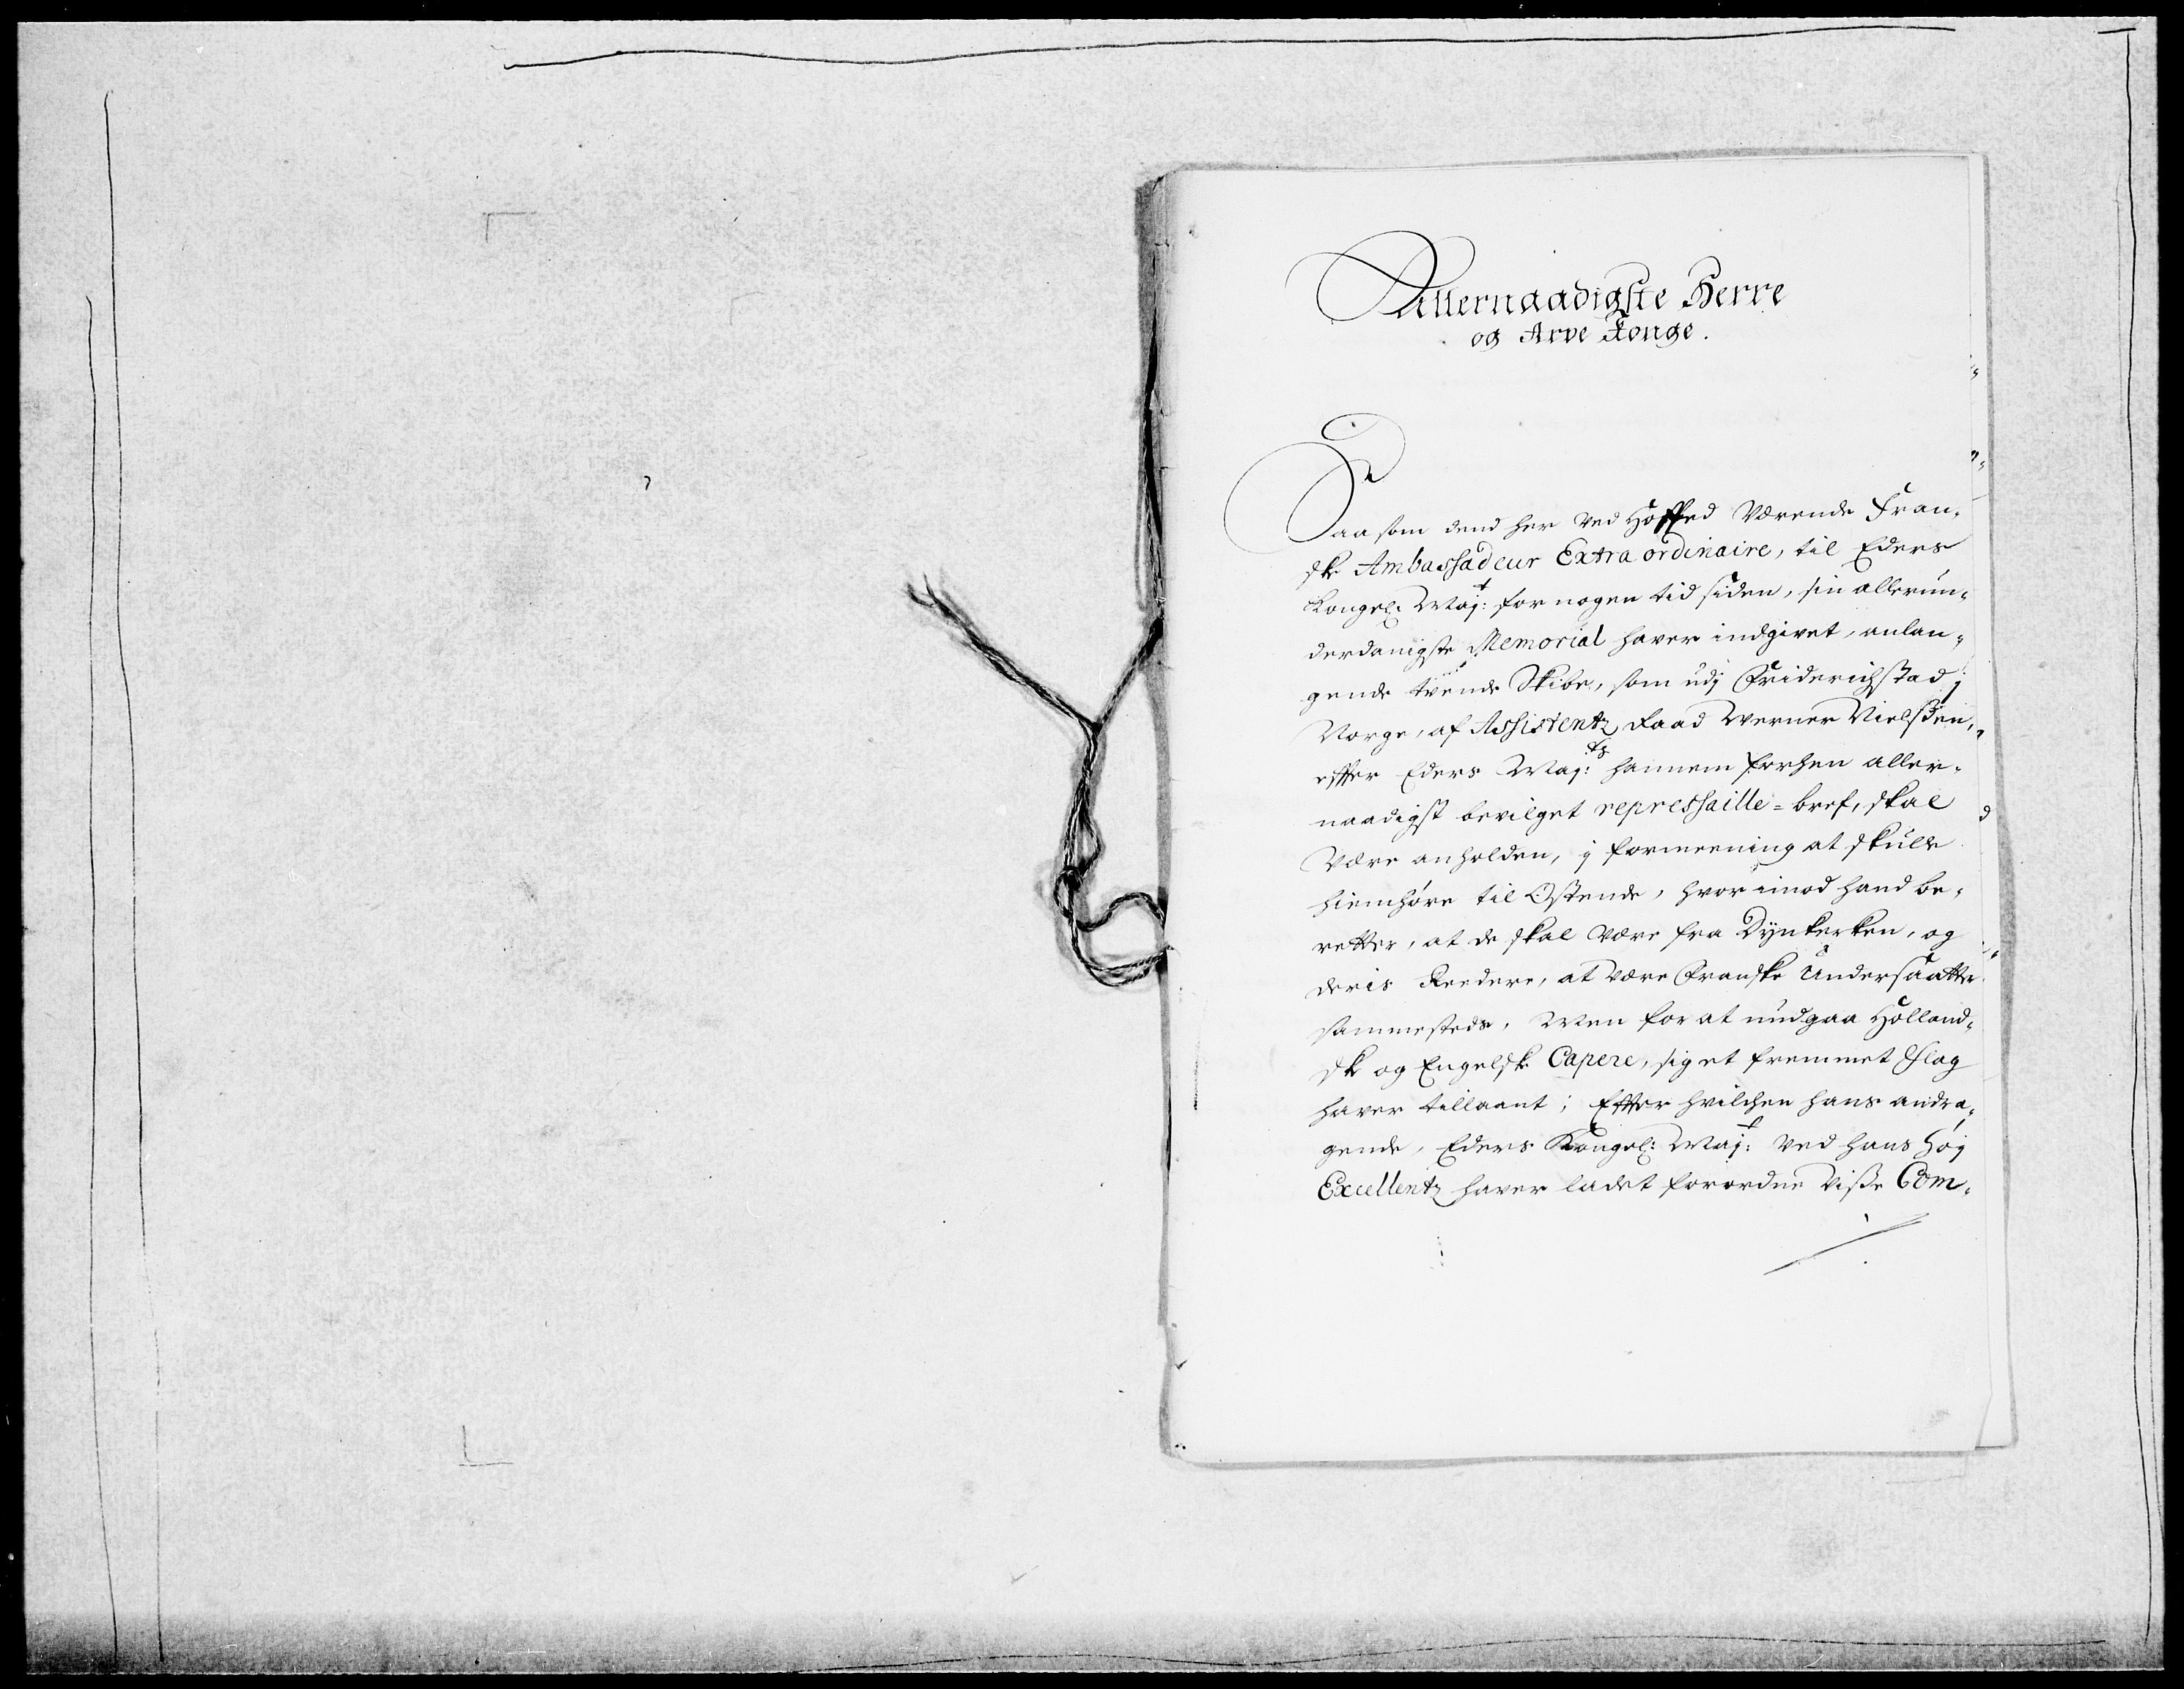 Allernaadigste Herre
og Arve Konge.
Saasom dend her ved Hoffed Værende Fran-
ske Ambassadeur Extraordinaire, til Eders
Kongel: Maj:t for nogen tid siden, sin allerun-
derdanigste Memorial haver indgivet, anlan-
gende tvende Skibe, som udj Friderichstad j
Norge, af Assistentz Raad Werner Nielsen,
effter Eders Maj:ts hannem forhen aller-
naadigst bevilget repressaille=bref, skal
være anholden, j formeening at skulle
hiemhøre til Ostende, hvor imod hand be-
retter, at de skal være fra Dynkerken, og
deris Reedere, at være Franske Undersaatter
sammesteds, Men for at undgaa Holland-
ske og Engelske Capere, sig et fremmet Flag
haver tillaant; Effter hvilchen hans andra-
gende, Eders Kongel: Maj:t ved hans høj
Excellentz haver ladet forordne visse Com-